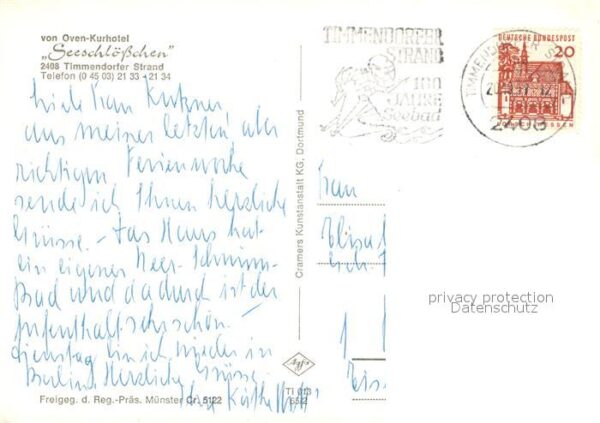 von Oven-Kurhotel
„Seeschlößchen"
2408 Timmendorfer Strand
Telefon (0 45 03) 21 33 + 21 34
Liebe Frau Kutzner,
aus meiner letzten, aber
richtigen Ferienwoche
sende ich Ihnen herzliche
Grüsse. - Das Haus hat
ein eigenes Meer-Schwimm-
Bad und dadurch ist der
Aufenthalt sehr schön. -
Dienstag bin ich wieder in
Berlin. Herzliche Grüsse
Ihre Käthe
Freigeg. d. Reg.-Präs. Münster Cr. 5122
Cramers Kunstanstalt KG, Dortmund
Agfa
TI 013
65/2
TIMMENDORFER
STRAND
100
JAHRE
Seebad
TIMMENDORFER STRAND
2408
DEUTSCHE BUNDESPOST
20
Frau
1
privacy protection
Datenschutz